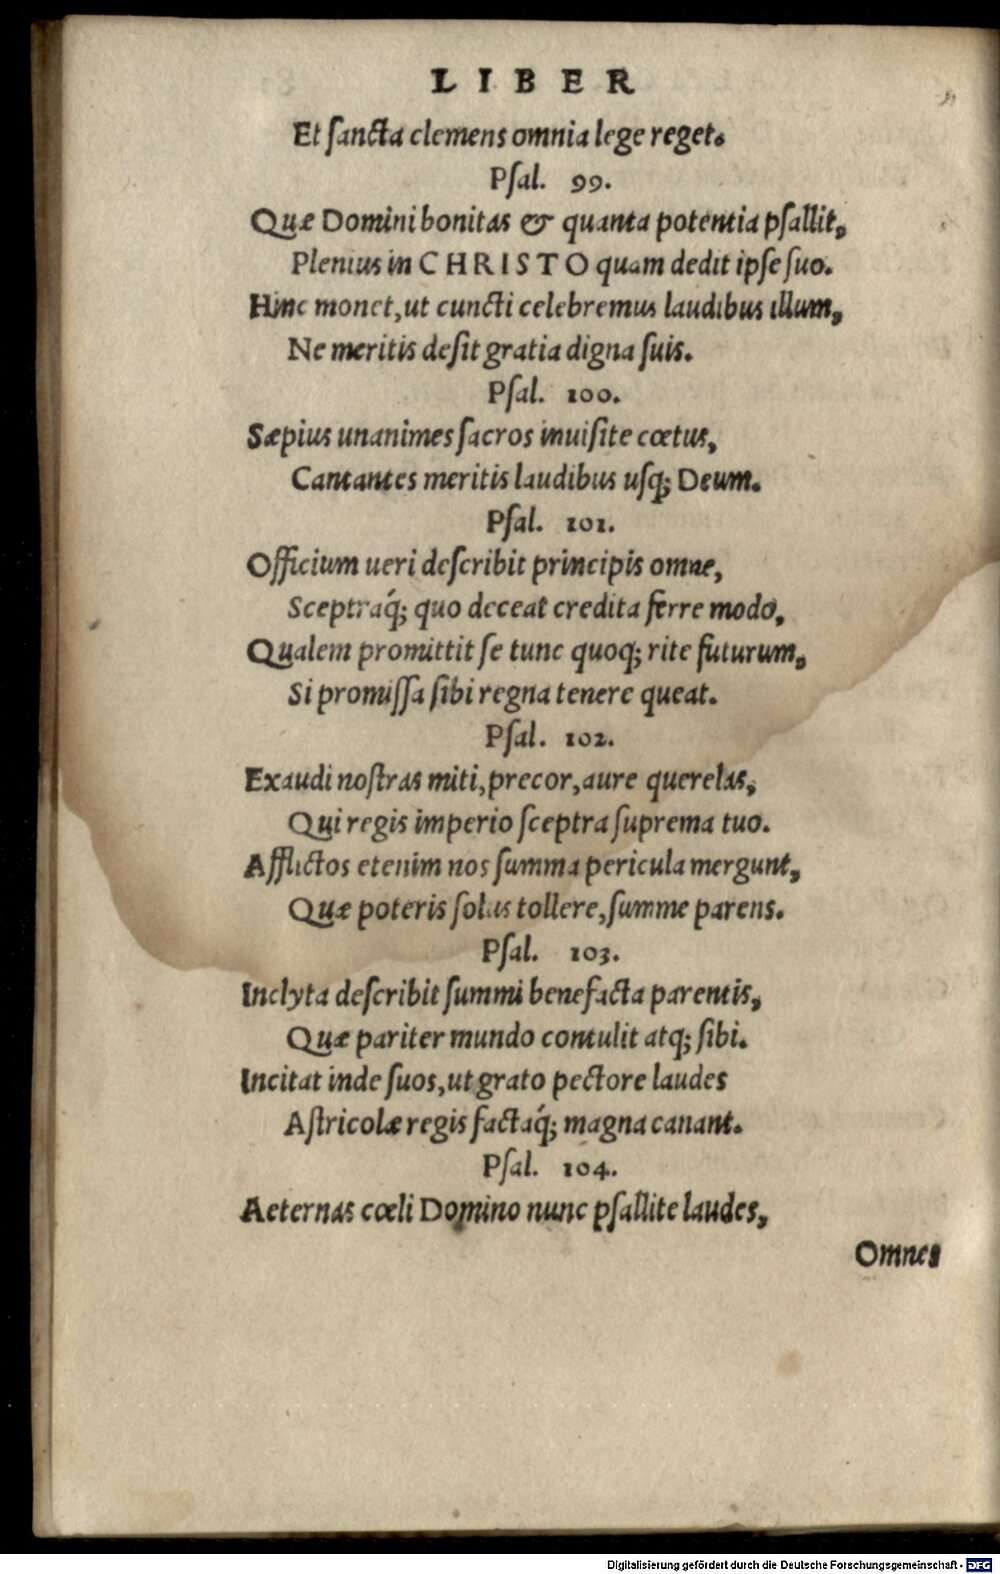 LIBER
Et sancta clemens omnia lege reget.
Psal. 99.
Quæ Domini bonitas & quanta potentia psallit,
Plenius in CHRISTO quam dedit ipse suo.
Hinc monet, ut cuncti celebremus laudibus illum,
Ne meritis desit gratia digna suis.
Psal. 100.
Sæpius unanimes sacros inuisite cœtus,
Cantantes meritis laudibus usq; Deum.
Psal. 101.
Officium ueri describit principis omne,
Sceptraq́; quo deceat credita ferre modo,
Qualem promittit se tunc quoq; rite futurum,
Si promissa sibi regna tenere queat.
Psal. 102.
Exaudi nostras miti, precor, aure querelas,
Qui regis imperio sceptra suprema tuo.
Afflictos etenim nos summa pericula mergunt,
Quæ poteris solus tollere, summe parens.
Psal. 103.
Inclyta describit summi benefacta parentis,
Quæ pariter mundo contulit atq; sibi.
Incitat inde suos, ut grato pectore laudes
Astricolæ regis factaq́; magna canant.
Psal. 104.
Aeternas cœli Domino nunc psallite laudes,
Omnes
Digitalisierung gefördert durch die Deutsche Forschungsgemeinschaft - DFG